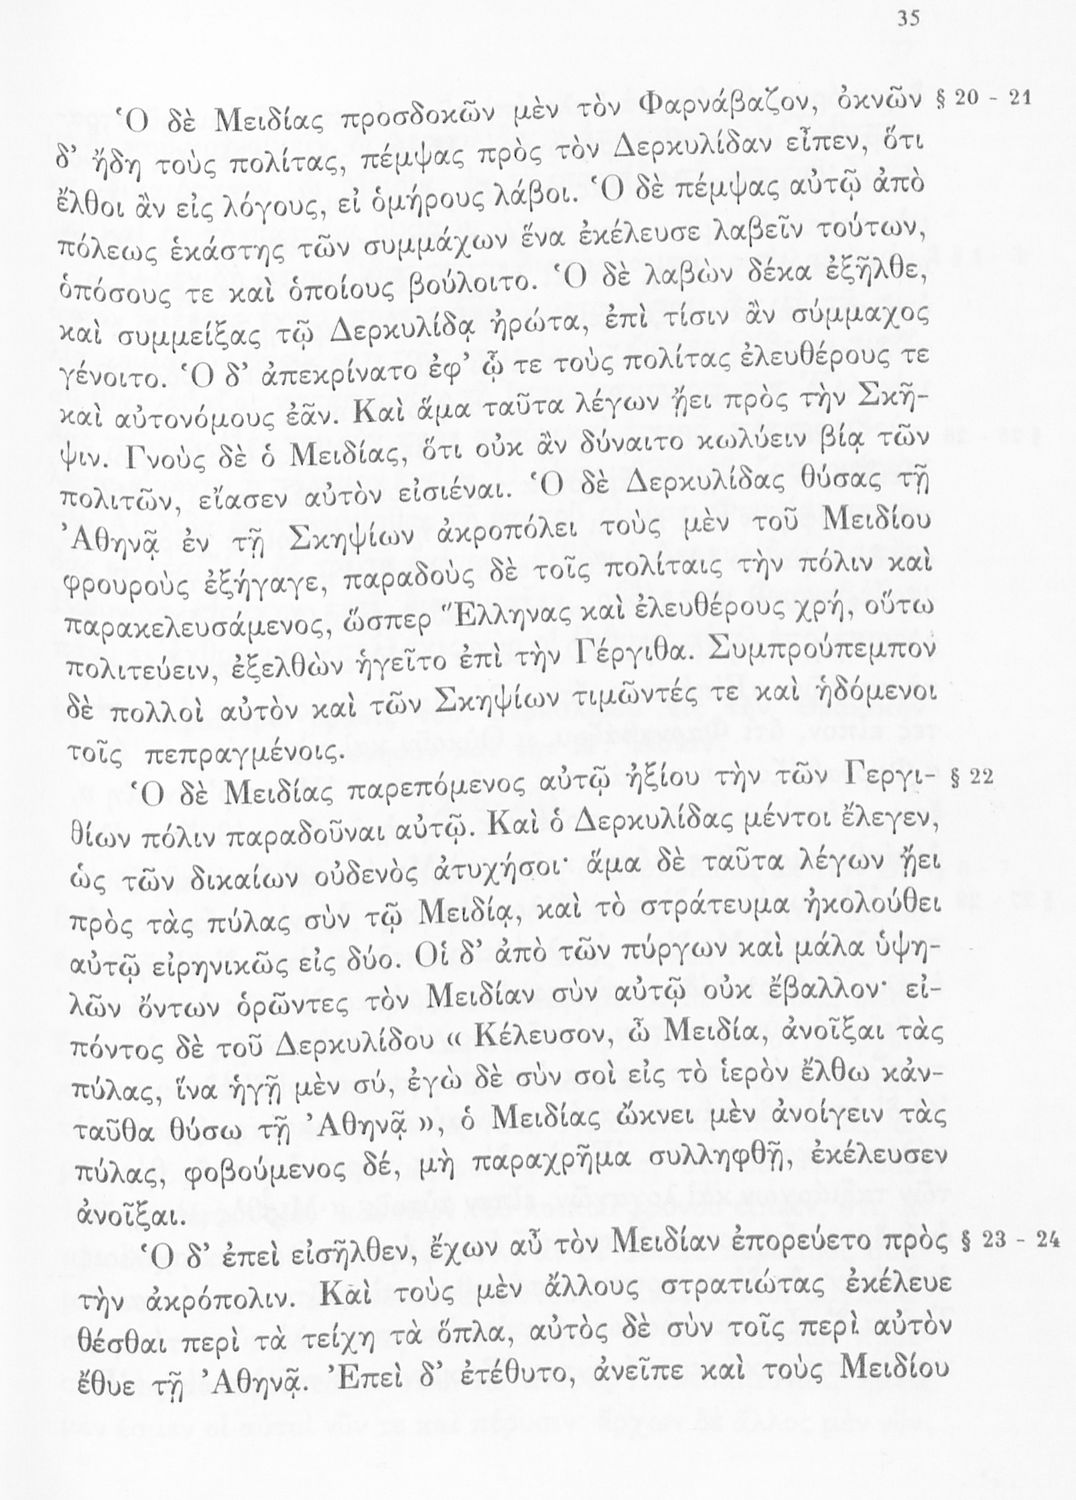 35
Ὁ δὲ Μειδίας προσδοκῶν μὲν τὸν Φαρνάβαζον, ὀκνῶν § 20 - 21
δ’ ἤδη τοὺς πολίτας, πέμψας πρὸς τὸν Δερκυλίδαν εἶπεν, ὅτι
ἔλθοι ἂν εἰς λόγους, εἰ ὁμήρους λάβοι. Ὁ δὲ πέμψας αὐτῷ ἀπὸ
πόλεως ἑκάστης τῶν συμμάχων ἕνα ἐκέλευσε λαβεῖν τούτων,
ὁπόσους τε καὶ ὁποίους βούλοιτο. Ὁ δὲ λαβὼν δέκα ἐξῆλθε,
καὶ συμμείξας τῷ Δερκυλίδᾳ ἠρώτα, ἐπὶ τίσιν ἂν σύμμαχος
γένοιτο. Ὁ δ’ ἀπεκρίνατο ἐφ’ ᾧ τε τοὺς πολίτας ἐλευθέρους τε
καὶ αὐτονόμους ἐᾶν. Καὶ ἅμα ταῦτα λέγων ᾔει πρὸς τὴν Σκῆ-
ψιν. Γνοὺς δὲ ὁ Μειδίας, ὅτι οὐκ ἂν δύναιτο κωλύειν βίᾳ τῶν
πολιτῶν, εἴασεν αὐτὸν εἰσιέναι. Ὁ δὲ Δερκυλίδας θύσας τῇ
Ἀθηνᾷ ἐν τῇ Σκηψίων ἀκροπόλει τοὺς μὲν τοῦ Μειδίου
φρουροὺς ἐξήγαγε, παραδοὺς δὲ τοῖς πολίταις τὴν πόλιν καὶ
παρακελευσάμενος, ὥσπερ Ἕλληνας καὶ ἐλευθέρους χρή, οὕτω
πολιτεύειν, ἐξελθὼν ἡγεῖτο ἐπὶ τὴν Γέργιθα. Συμπρούπεμπον
δὲ πολλοὶ αὐτὸν καὶ τῶν Σκηψίων τιμῶντές τε καὶ ἡδόμενοι
τοῖς πεπραγμένοις.
Ὁ δὲ Μειδίας παρεπόμενος αὐτῷ ἠξίου τὴν τῶν Γεργι- § 22
θίων πόλιν παραδοῦναι αὐτῷ. Καὶ ὁ Δερκυλίδας μέντοι ἔλεγεν,
ὡς τῶν δικαίων οὐδενὸς ἀτυχήσοι· ἅμα δὲ ταῦτα λέγων ᾔει
πρὸς τὰς πύλας σὺν τῷ Μειδίᾳ, καὶ τὸ στράτευμα ἠκολούθει
αὐτῷ εἰρηνικῶς εἰς δύο. Οἱ δ’ ἀπὸ τῶν πύργων καὶ μάλα ὑψη-
λῶν ὄντων ὁρῶντες τὸν Μειδίαν σὺν αὐτῷ οὐκ ἔβαλλον· εἰ-
πόντος δὲ τοῦ Δερκυλίδου « Κέλευσον, ὦ Μειδία, ἀνοῖξαι τὰς
πύλας, ἵνα ἡγῇ μὲν σύ, ἐγὼ δὲ σὺν σοὶ εἰς τὸ ἱερὸν ἔλθω κἀν-
ταῦθα θύσω τῇ Ἀθηνᾷ », ὁ Μειδίας ὤκνει μὲν ἀνοίγειν τὰς
πύλας, φοβούμενος δέ, μὴ παραχρῆμα συλληφθῇ, ἐκέλευσεν
ἀνοῖξαι.
Ὁ δ’ ἐπεὶ εἰσῆλθεν, ἔχων αὖ τὸν Μειδίαν ἐπορεύετο πρὸς § 23 - 24
τὴν ἀκρόπολιν. Καὶ τοὺς μὲν ἄλλους στρατιώτας ἐκέλευε
θέσθαι περὶ τὰ τείχη τὰ ὅπλα, αὐτὸς δὲ σὺν τοῖς περὶ αὐτὸν
ἔθυε τῇ Ἀθηνᾷ. Ἐπεὶ δ’ ἐτέθυτο, ἀνεῖπε καὶ τοὺς Μειδίου